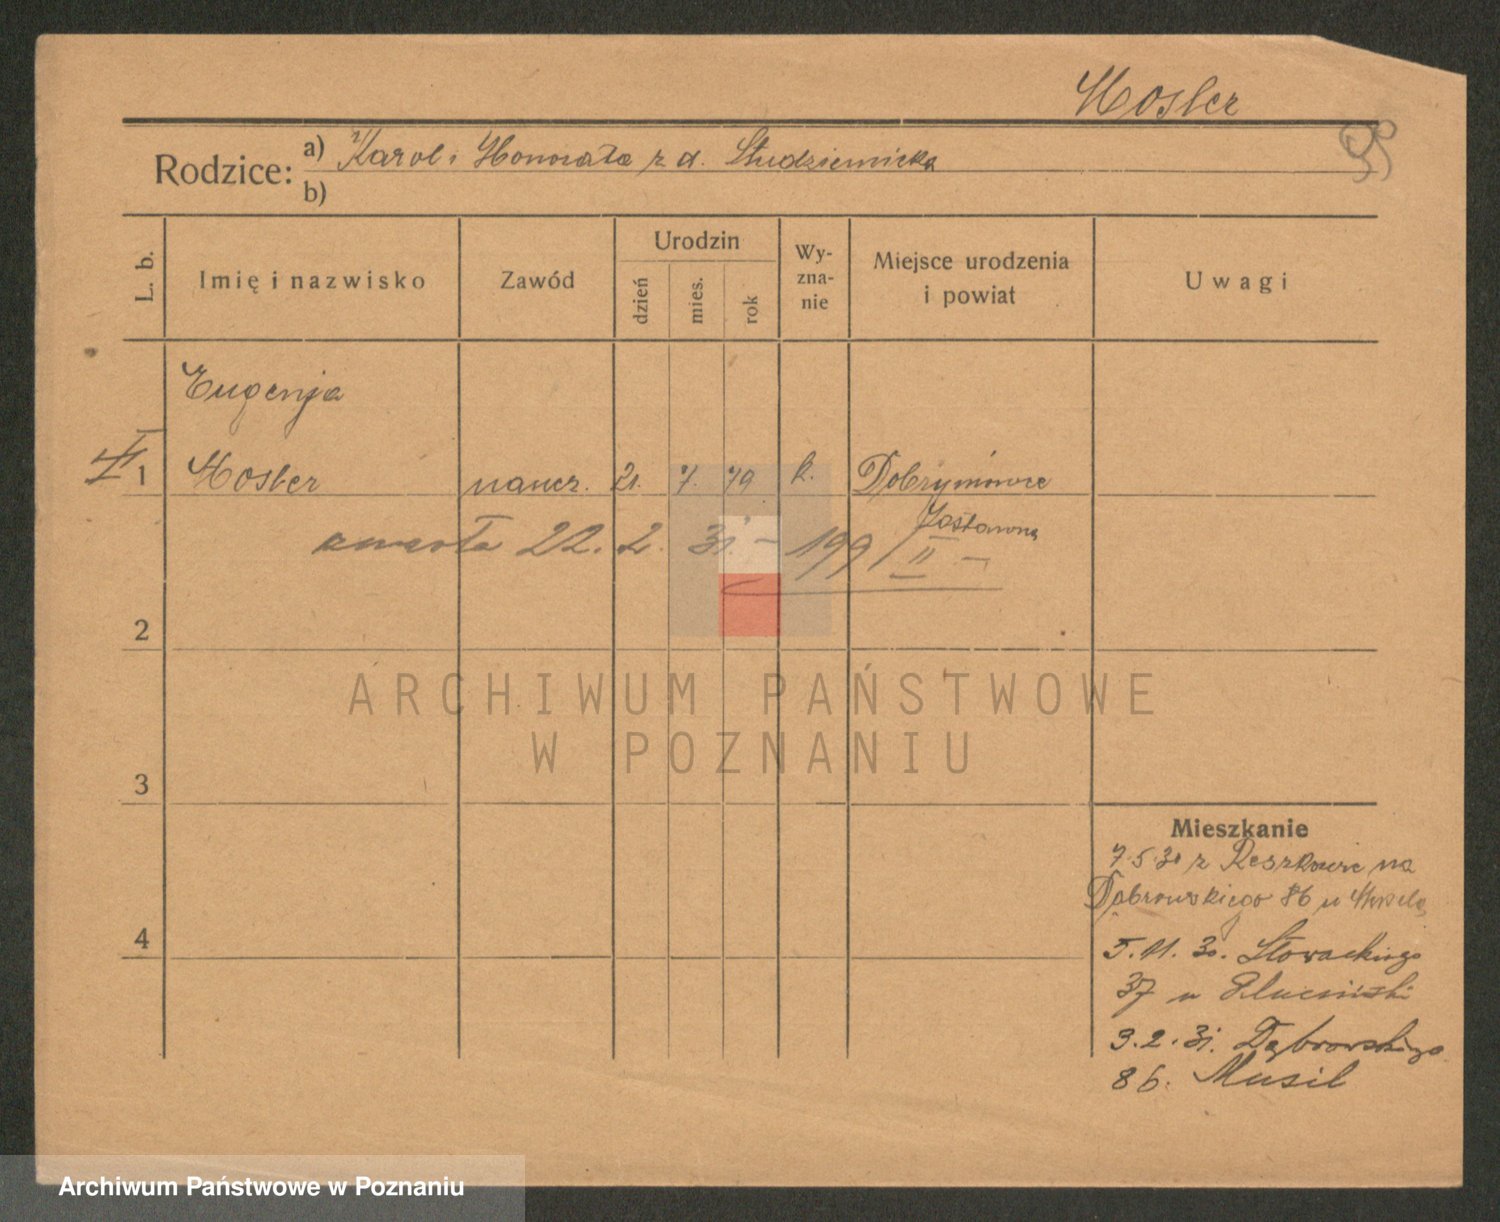 Mosler
95
Rodzice: a) Karol i Honorata z d. Studziemicka
b)
L. b.
Imię i nazwisko
Zawód
Urodzin
dzień
mies.
rok
Wy-
zna-
nie
Miejsce urodzenia
i powiat
Uwagi
Eugenja
1 Mosler naucz. 21. 7. 79 k.
Zastawna
zmarła 22. 2. 31. – 199/II –
2
ARCHIWUM PAŃSTWOWE
W POZNANIU
3
Mieszkanie
7.5.30 z na
Dąbrowskiego 86 u
4
5.11.30. Słowackiego
37 u Pluciński
3.2.31. Dąbrowskiego
86. Musil
Archiwum Państwowe w Poznaniu